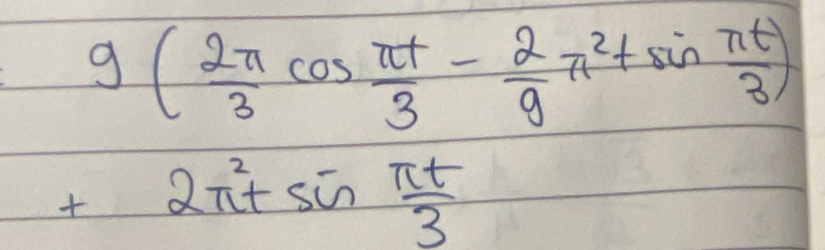 9 ( 2π/3 cos πt/3 - 2/9 π²t sin πt/3 )
+ 2π²t sin πt/3